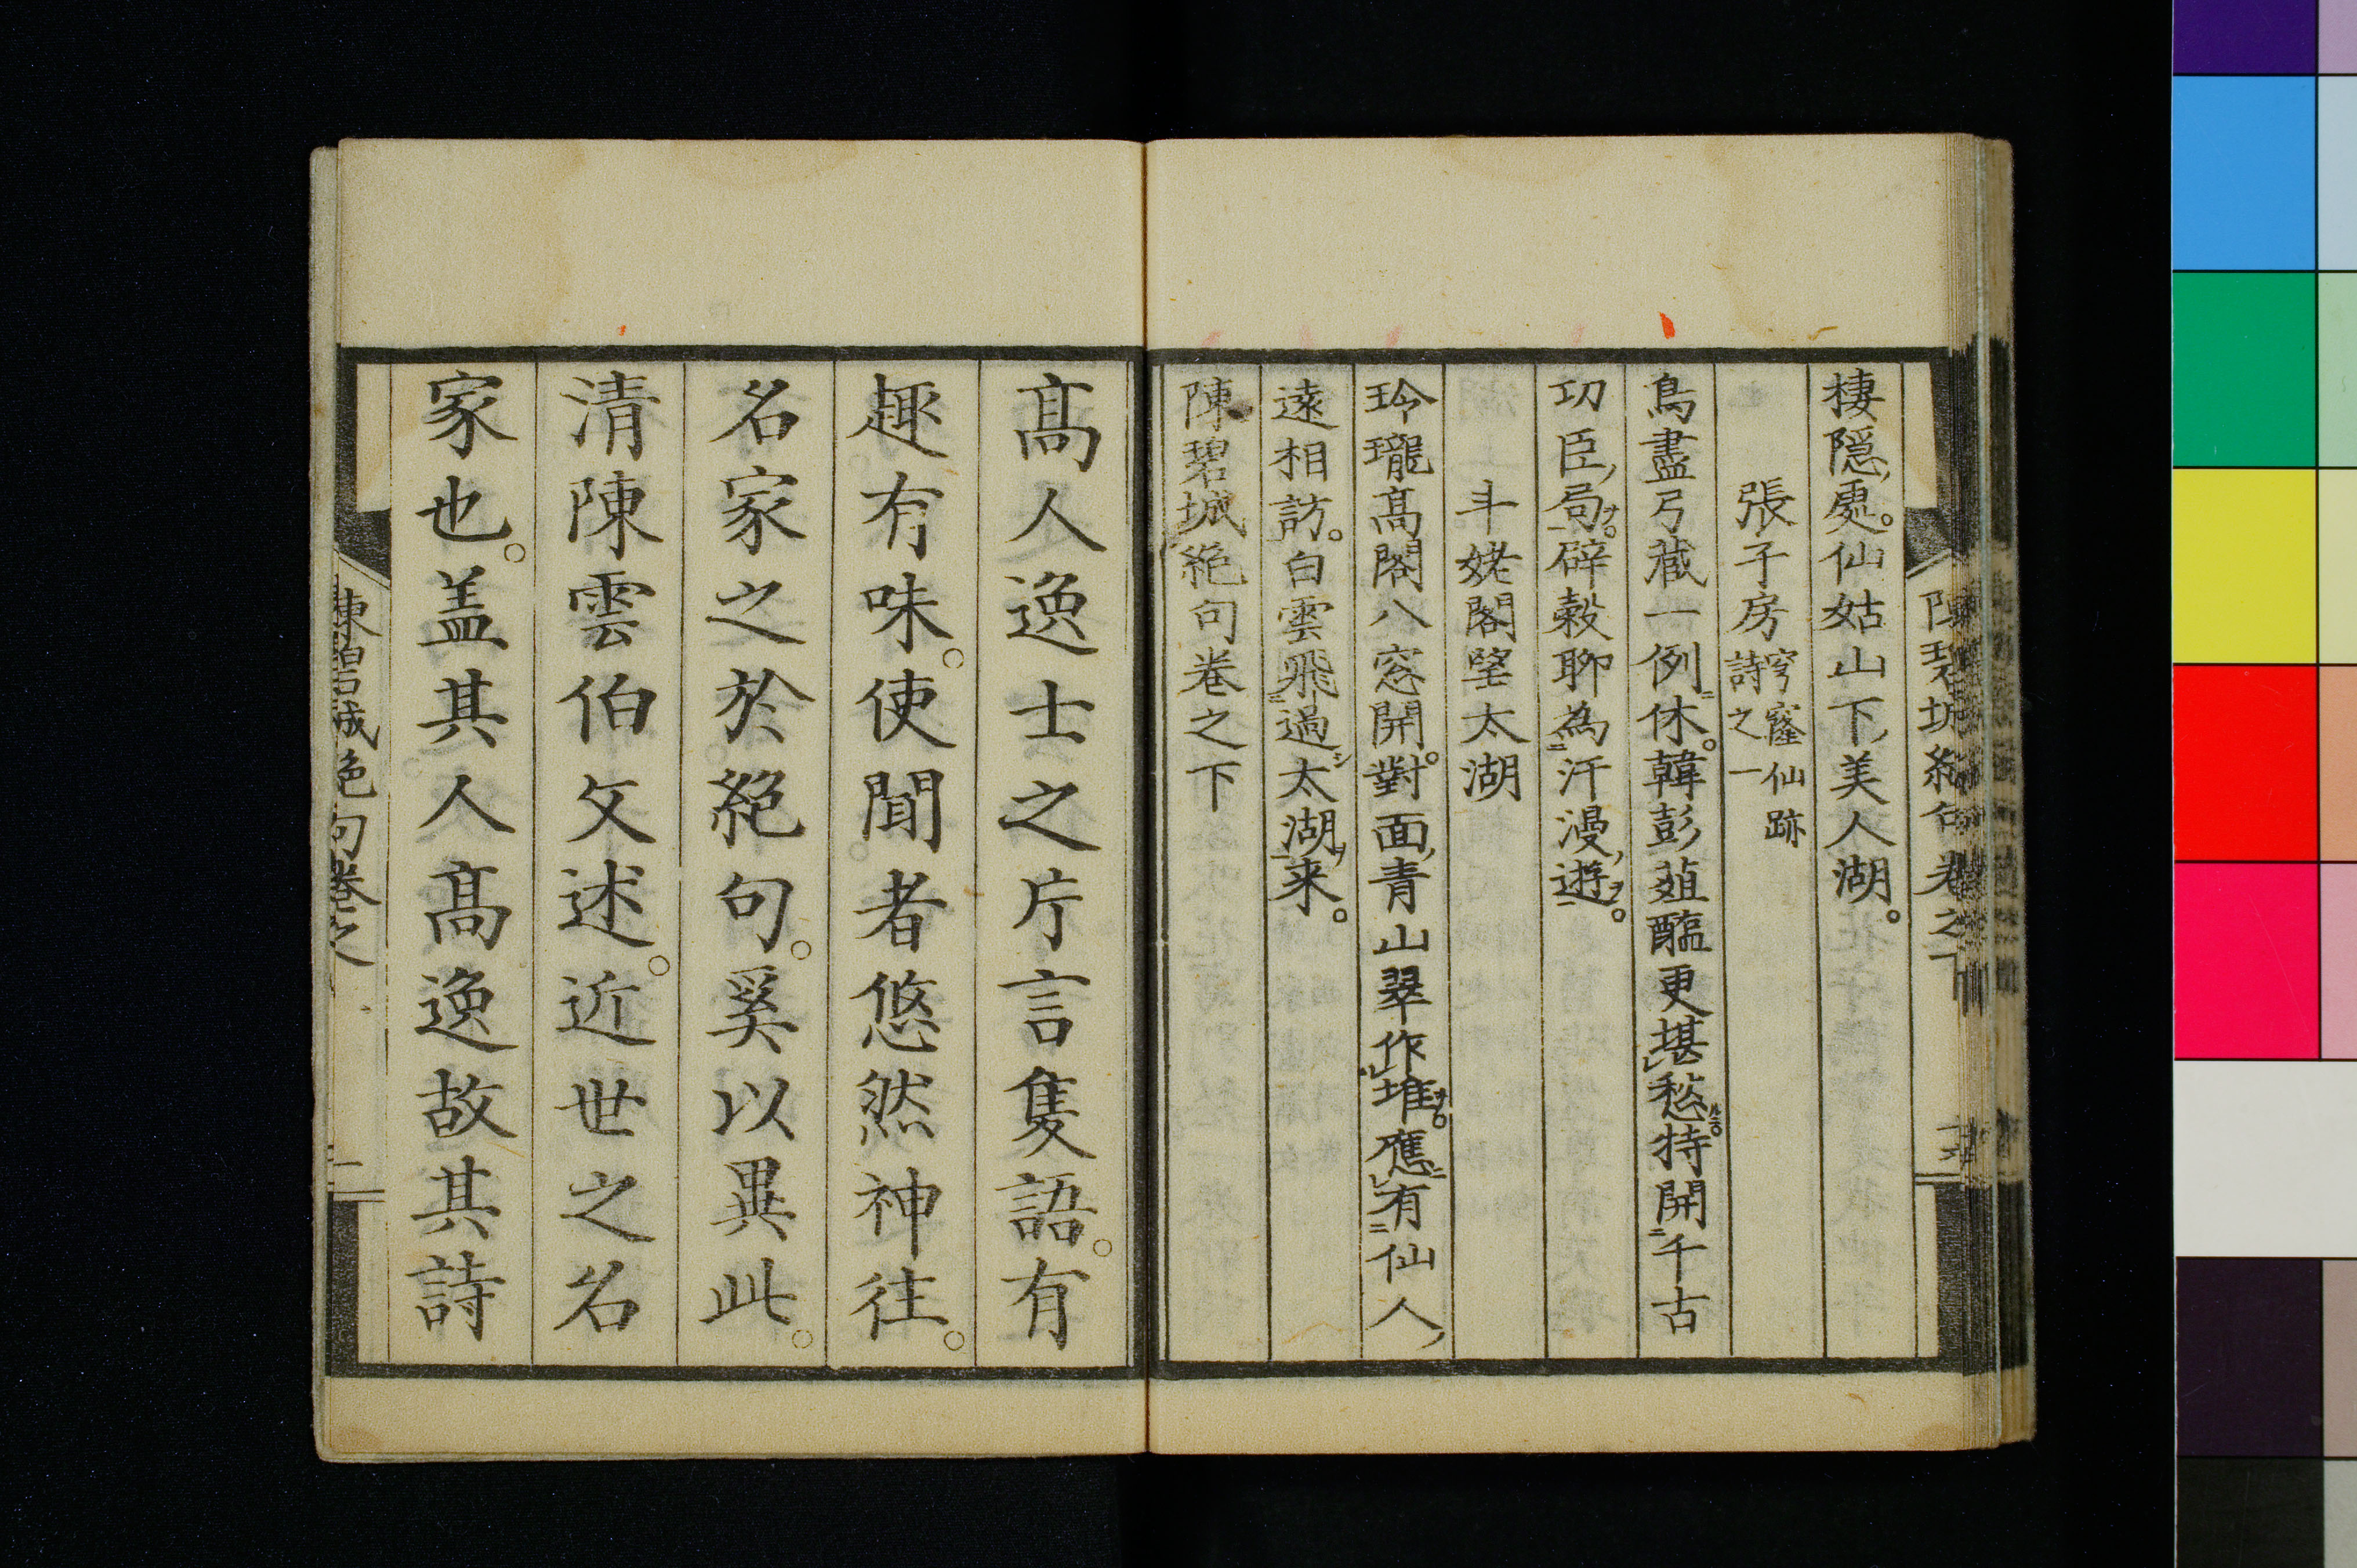 棲隠處。仙姑山下美人湖。
張子房 穹窿仙跡
詩之一
鳥盡弓蔵一例休。韓彭葅醢更堪愁。特開千古
功臣局。辟穀聊為汗漫遊。
斗姥閣望太湖
玲瓏髙閣八窓開。對面青山翠作堆。應有仙人
遠相訪。白雲飛過太湖来。
陳碧城絶句卷之下
髙人逸士之片言隻語。有
趣有味。使聞者悠然神往。
名家之於絶句。奚以異此。
清陳雲伯文述。近世之名
家也。盖其人髙逸故其詩